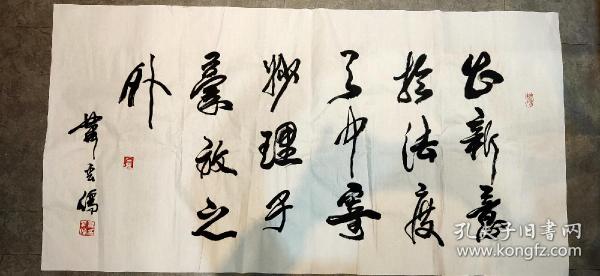 出新意
於法度
之中寄
妙理于
豪放之
外
萧云儒
孔夫子旧书网
www.kongfz.com